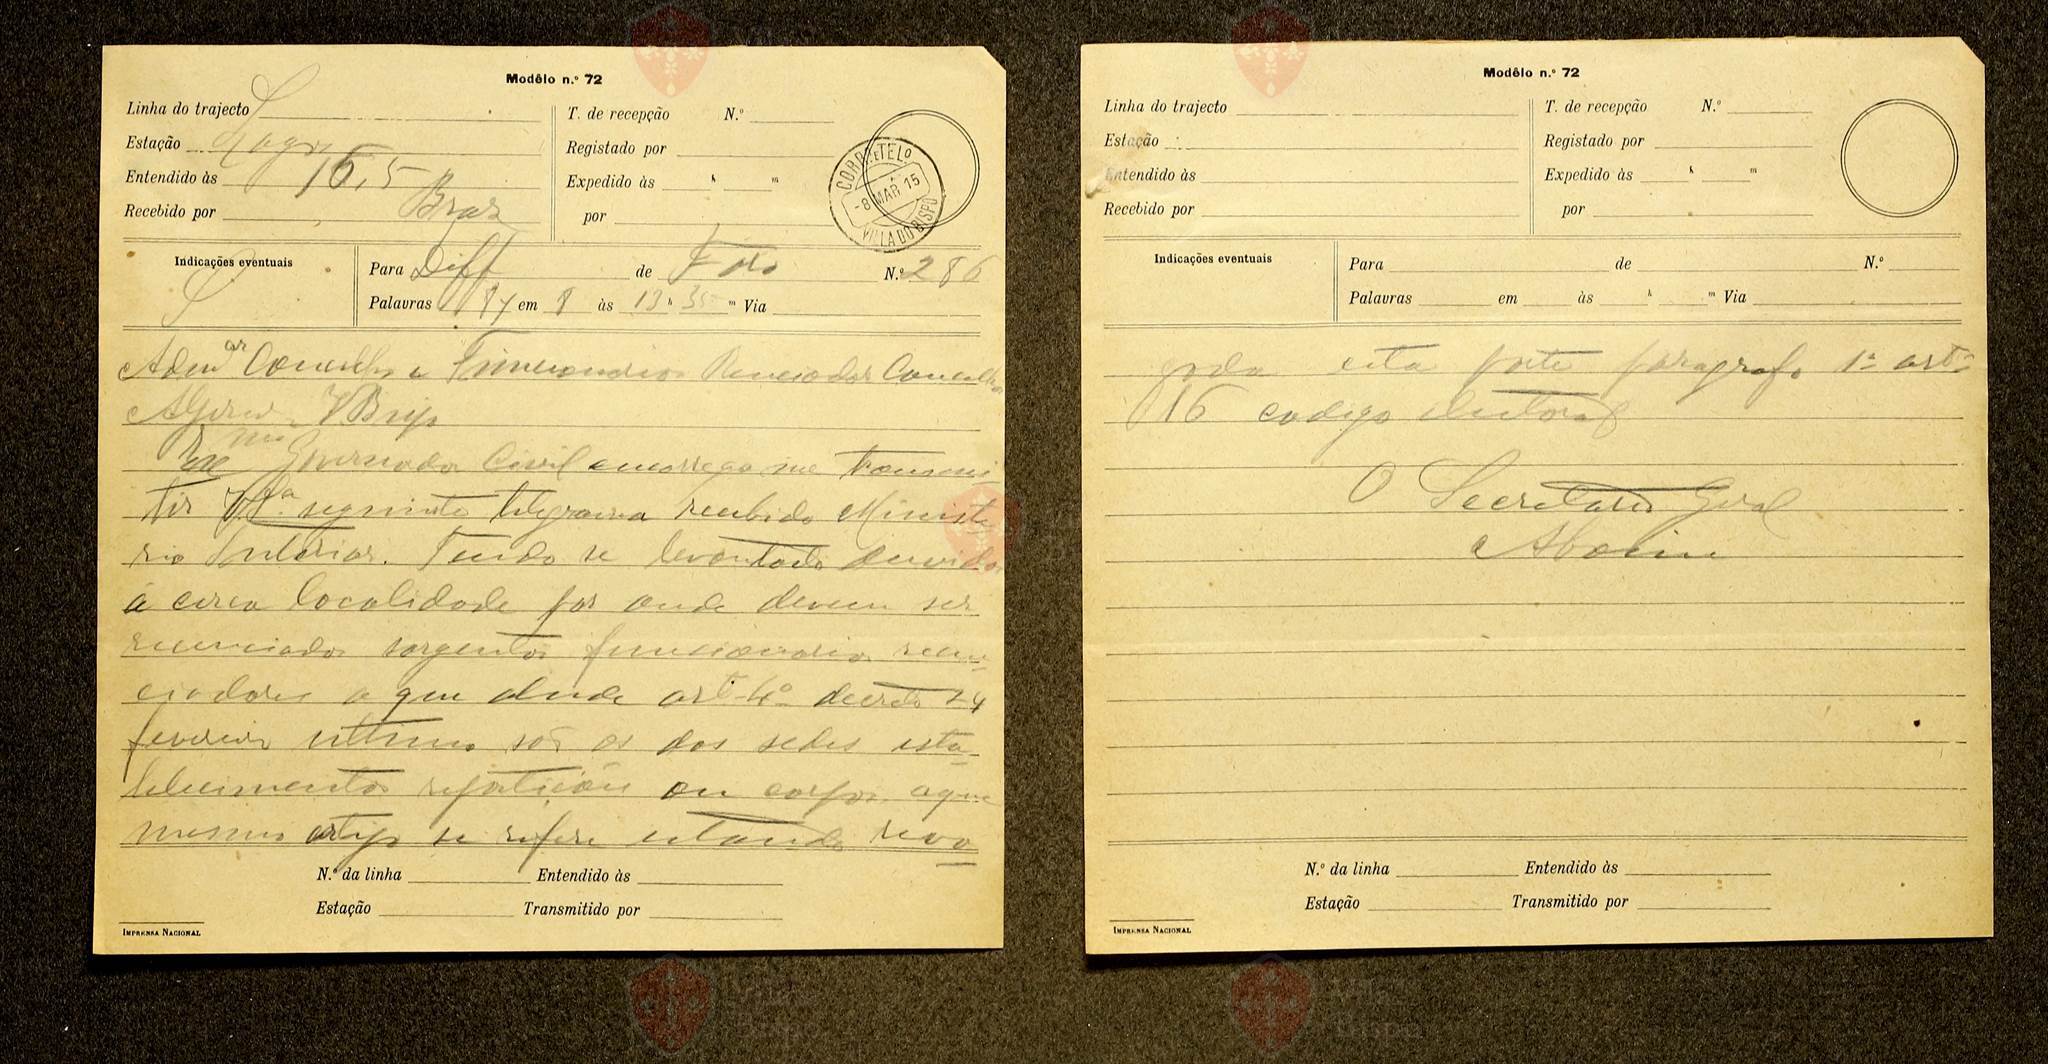 Modêlo n.º 72
Linha do trajecto
Estação Lagos
Entendido às 16,5
Recebido por Braz
T. de recepção N.º
Registado por
Expedido às h m
por
CORRº E TELº
-8 MAR 15
VILLA DO BISPO
Indicações eventuais
S
Para Diff de Faro N.º 286
Palavras 87 em 8 às 13 h 35 m Via
Admor Concelho e Funcionarios Concelhos
V Bispo
Exmo Governador Civil encarrega me transmi
tir V. Ex.a seguinte telegrama recebido Ministe
rio Interior. Tendo se levantado duvidas
á cerca localidade por onde devem ser
recenciados sargentos funcionarios recen
ciadores a que alude art 4º decreto 24
fevereiro ultimo são os das sedes esta-
belecimentos repartições ou corpos a que
mesmo artigo se refere estando revo
N.º da linha Entendido às
Estação Transmitido por
IMPRENSA NACIONAL
Modêlo n.º 72
Linha do trajecto
Estação
Entendido às
Recebido por
T. de recepção N.º
Registado por
Expedido às h m
por
Indicações eventuais
Para de N.º
Palavras em às h m Via
gada esta parte paragrafo 1º artº
16 codigo eleitoral
O Secretario Geral
Aboim
N.º da linha Entendido às
Estação Transmitido por
IMPRENSA NACIONAL
Vila do
Bispo
Vila do
Bispo